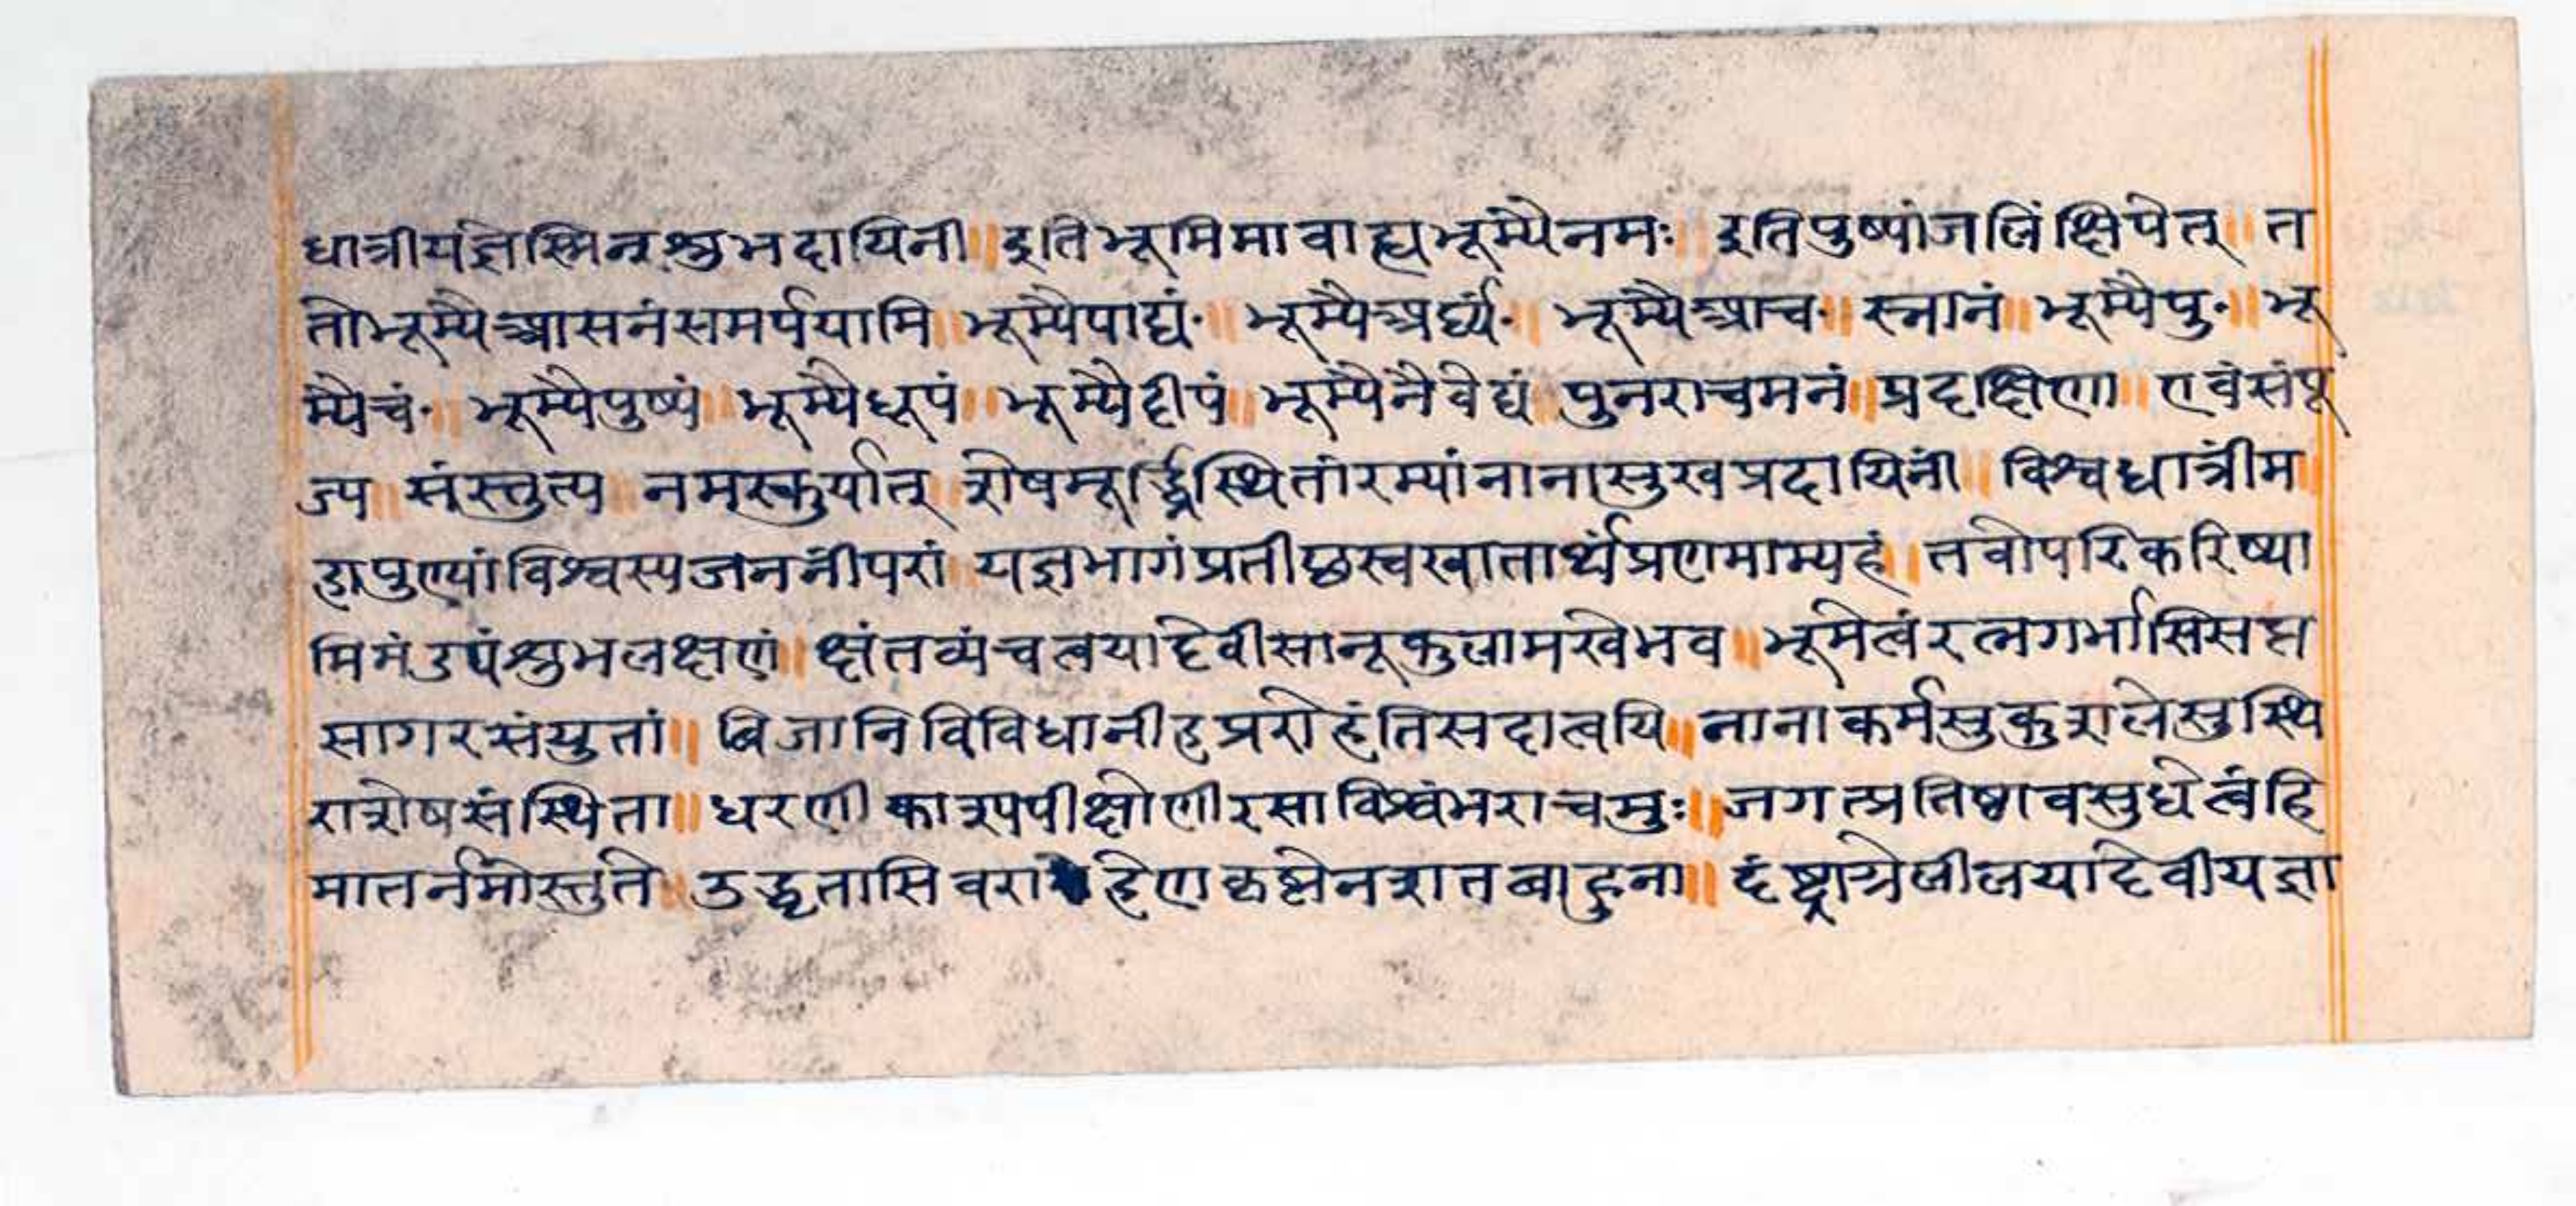 धात्रीयज्ञेस्मिन्शुभदायिनी ॥ इतिभूमिमावाह्यभूम्यैनमः ॥ इतिपुष्पांजलिंक्षिपेत् ॥ त
तोभूम्यैआसनंसमर्पयामि ॥ भूम्यैपाद्यं॰ ॥ भूम्यैअर्घ्यं॰ ॥ भूम्यैआच॰ ॥ स्नानं ॥ भूम्यैपु॰ ॥ भू
म्यैचं॰ ॥ भूम्यैपुष्पं ॥ भूम्यैधूपं ॥ भूम्यैदीपं ॥ भूम्यैनैवेद्यं ॥ पुनराचमनं ॥ प्रदक्षिणा ॥ एवंसंपू
ज्य ॥ संस्तुत्य ॥ नमस्कुर्यात् ॥ शेषमूर्द्ध्निस्थितांरम्यांनानासुखप्रदायिनीं ॥ विश्वधात्रींम
हापुण्यांविश्वस्यजननींपरां ॥ यज्ञभागंप्रतीछस्वखातार्थंप्रणमाम्यहं ॥ तवोपरिकरिष्या
मिमंडपंशुभलक्षणं ॥ क्षंतव्यंचत्वयादेवीसानूकुलामखेभव ॥ भूमेत्वंरत्नगर्भासिसप्त
सागरसंयुतां ॥ बिजानिविविधानीहप्ररोहंतिसदात्वयि ॥ नानाकर्मसुकुशलेसुस्थि
राशेषसंस्थिता ॥ धरणीकाश्यपीक्षोणीरसाविश्वंभराचमुः ॥ जगत्प्रतिष्ठावसुधेत्वंहि
मातर्नमोस्तुते ॥ उद्धृतासिवराहेणकृष्णेनशतबाहुना ॥ दंष्ट्राग्रेलीलयादेवीयज्ञा